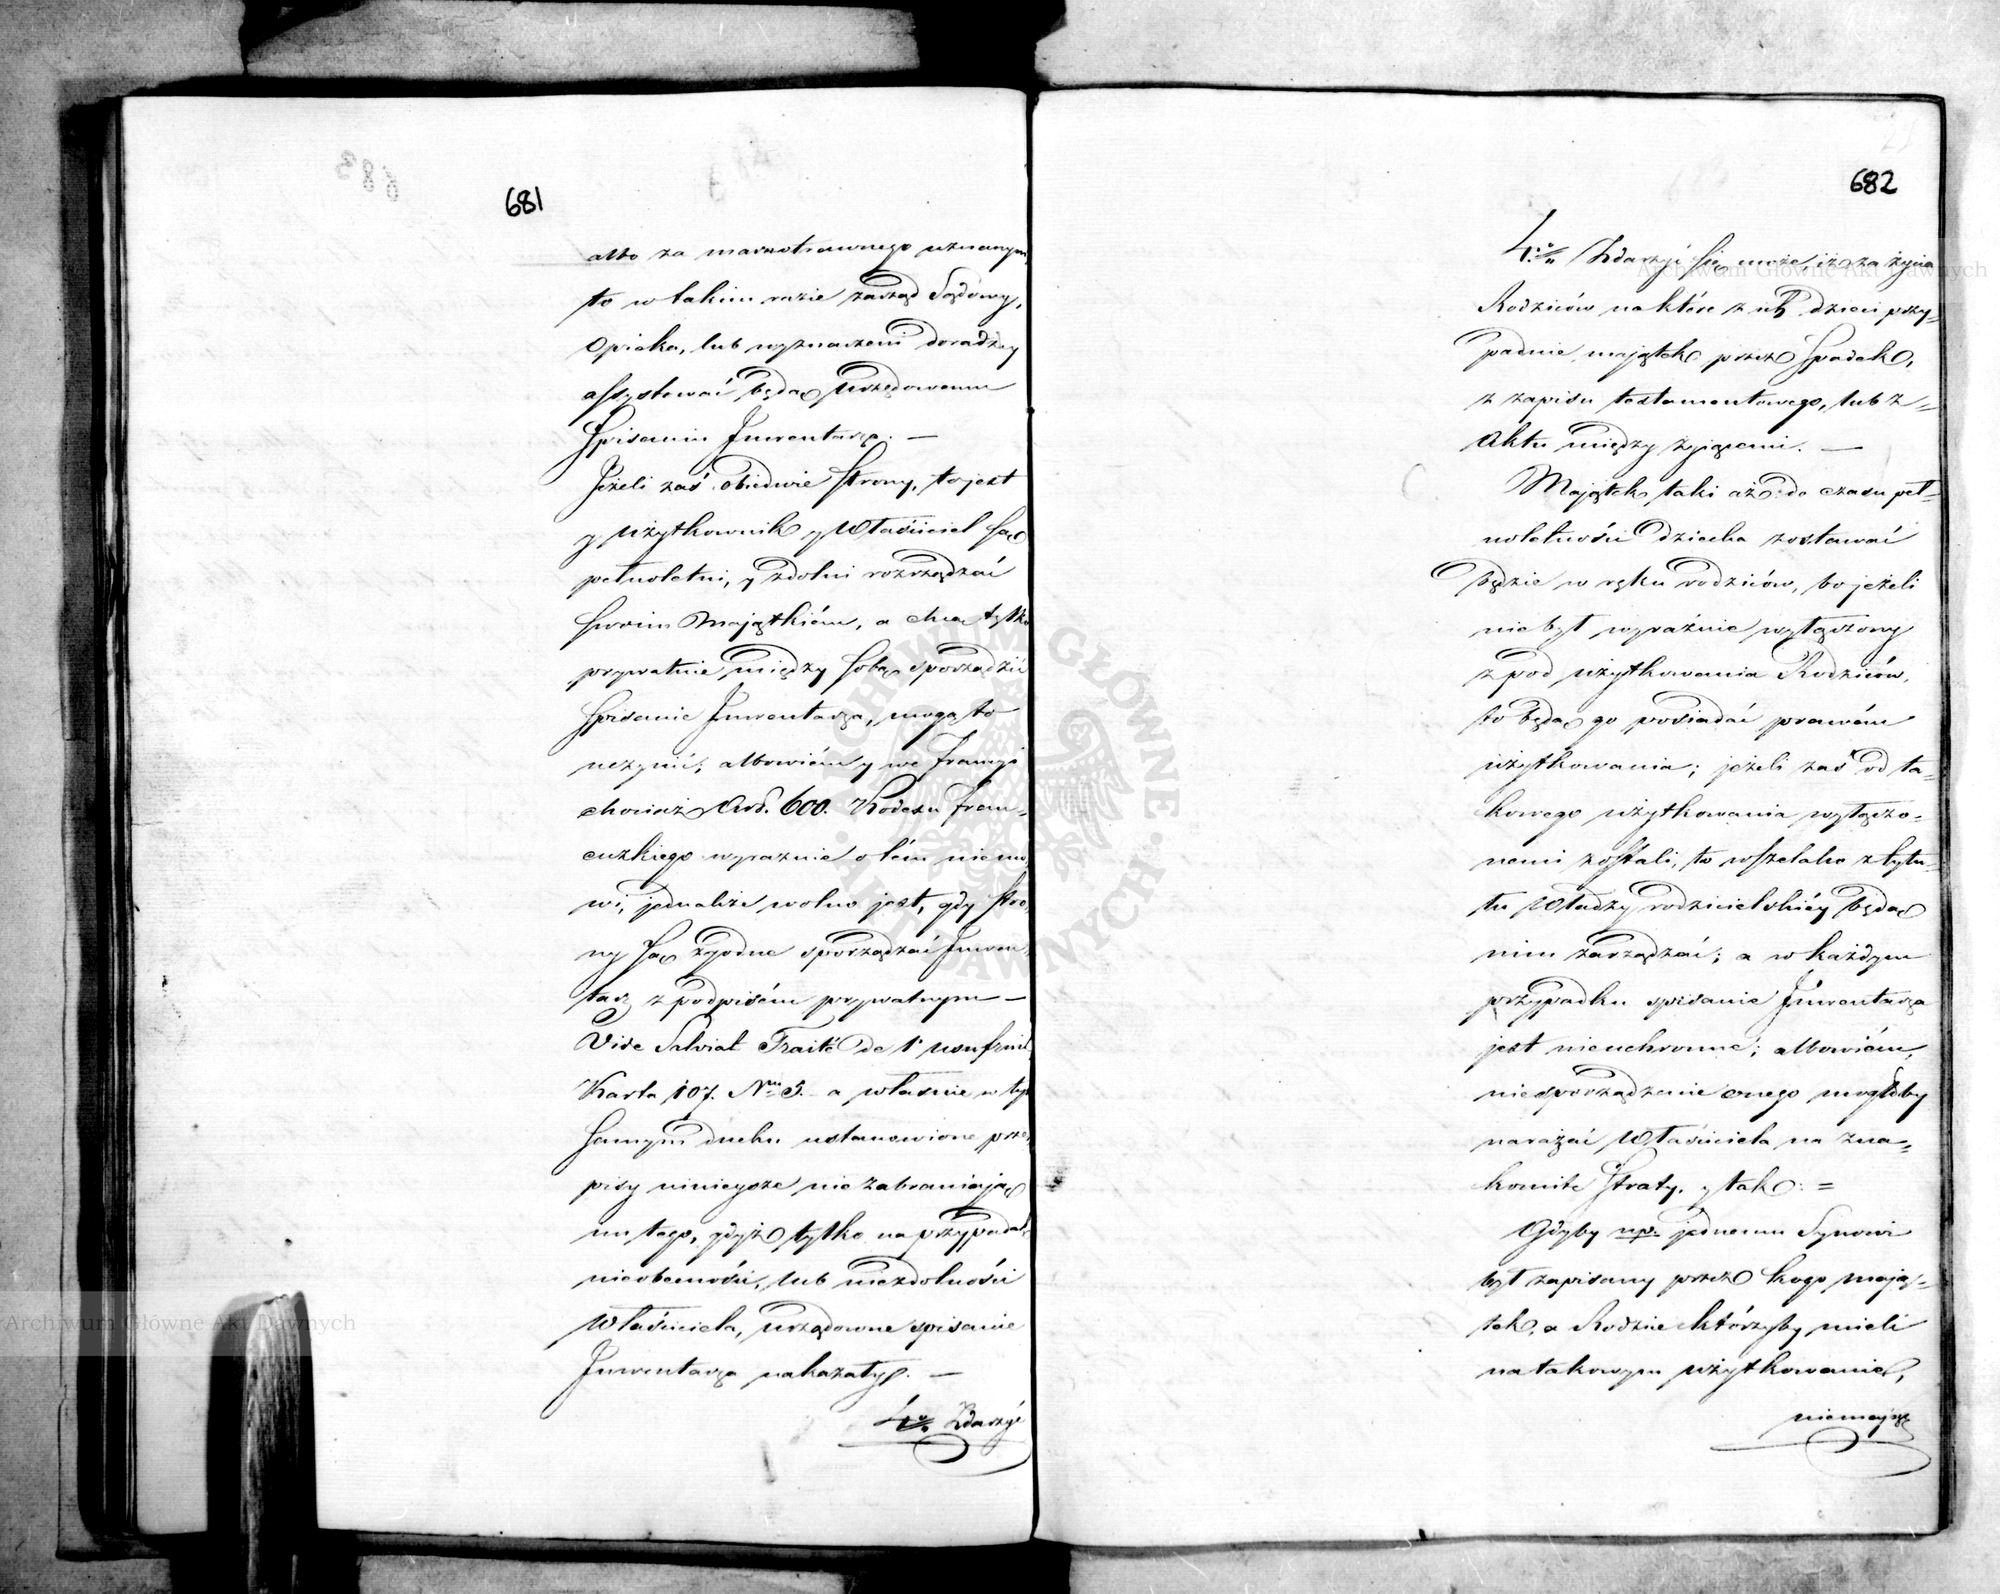 681
albo za marnotrawnego uznanym,
to w takim razie zarząd Sądowy,
Opieka, lub wyznaczeni doradzcy
assystować będą Urzędowemu
Spisaniu Inwentarza. —
Jeżeli zaś obiedwie Strony, to jest
y użytkownik y Właściciel są
pełnoletni, y zdolni rozrządzać
swoim Majątkiem, a chcą tylko
prywatnie między sobą sporządzić
spisanie Inwentarza, mogą to
uczynić; albowiem y we Francyi
chociaż Art. 600. Kodexu fran=
cuzkiego wyraźnie o tém nie mó
wi, jednakże wolno jest, gdy stro
ny są zgodne sporządzać Inwen
tarz z podpisém prywatnym —
Vide Salviat Traité de l'usufruit
Karta 107. Nro 3. a właśnie w tym
samym duchu ustanowione prze
pisy ninieysze nie zabraniają
im tego, gdyż tylko na przypadek
nieobecności, lub niezdolności
Właściciela, urzędowne spisanie
Inwentarza nakazały. —
4to Zdarzyć
682
4to Zdarzyć się może, iż za życia
Rodziców na które z ich dzieci przy=
padnie majątek przez Spadek,
z zapisu testamentowego, lub z =
Aktu między żyjącemi. —
Majątek taki aż do czasu peł=
noletności dziecka zostawać
będzie w ręku rodziców, bo jeżeli
nie był wyraźnie wyłączony
z pod użytkowania Rodziców,
to będą go posiadać prawém
użytkowania; jeżeli zaś od ta=
kowego użytkowania wyłączo=
nemi zostali, to wszelako z tytu=
łu Władzy rodzicielskiéy będą
nim zarządzać; a w każdym
przypadku spisanie Inwentarza
jest nieuchronne; albowiem,
niesporządzenie onego mogłoby
narażać Właściciela na zna=
komite Straty, y tak: =
Gdyby np. jednemu Synowi
był zapisany przez kogo mają=
tek, a Rodzice którzyby mieli
na takowym użytkowanie,
niemając
Archiwum Główne Akt Dawnych
Archiwum Główne Akt Dawnych
ARCHIWUM GŁÓWNE AKT DAWNYCH